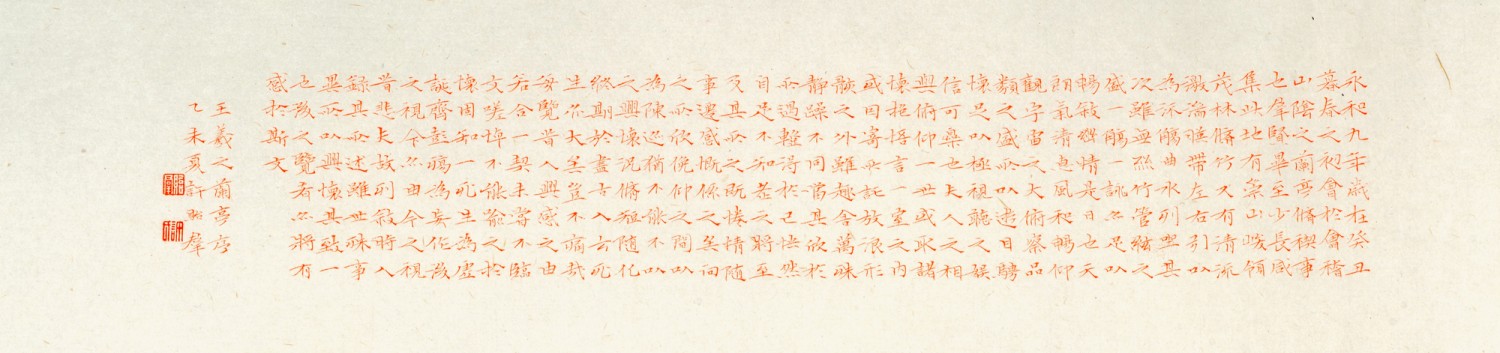 永和九年歲在癸丑
暮春之初會於會稽
山陰之蘭亭脩禊事
也羣賢畢至少長咸
集此地有崇山峻領
茂林脩竹又有清流
激湍暎帶左右引以
為流觴曲水列坐其
次雖無絲竹管絃之
盛一觴一詠亦足以
暢敘幽情是日也天
朗氣清惠風和暢仰
觀宇宙之大俯察品
類之盛所以遊目騁
懷足以極視聽之娛
信可樂也夫人之相
與俯仰一世或取諸
懷抱悟言一室之內
或因寄所託放浪形
骸之外雖趣舍萬殊
靜躁不同當其欣於
所遇暫得於己怏然
自足不知老之將至
及其所之既惓情隨
事遷感慨係之矣向
之所欣俛仰之間以
為陳迹猶不能不以
之興懷況脩短隨化
終期於盡古人云死
生亦大矣豈不痛哉
每覽昔人興感之由
若合一契未嘗不臨
文嗟悼不能喻之於
懷固知一死生為虛
誕齊彭殤為妄作後
之視今亦由今之視
昔悲夫故列敘時人
錄其所述雖世殊事
異所以興懷其致一
也後之覽者亦將有
感於斯文
王羲之蘭亭序
乙未夏許昭羣